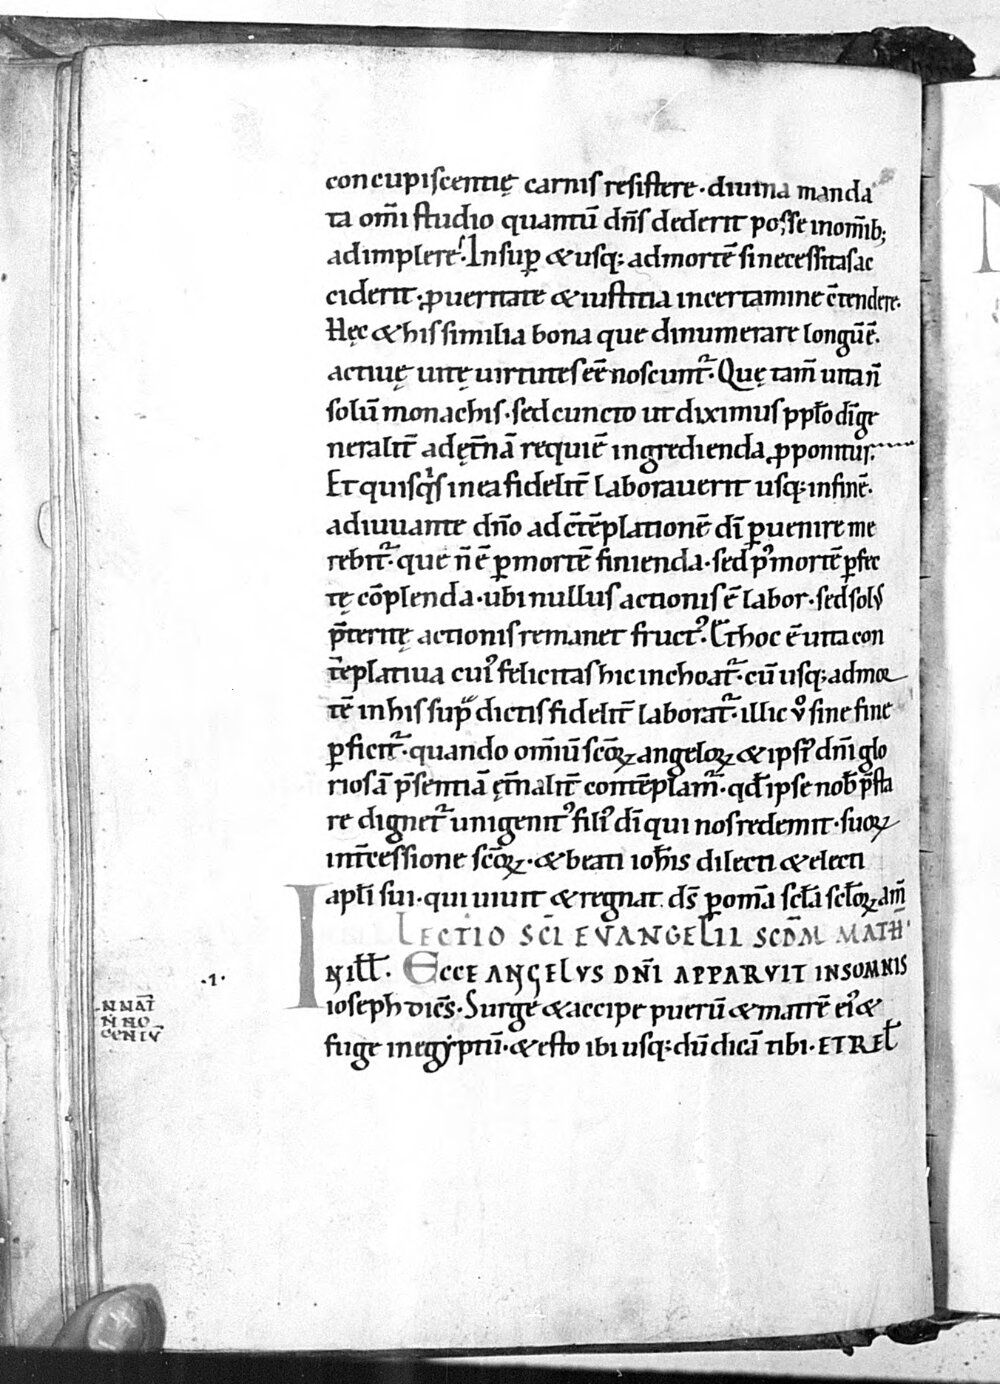 concupiscentię carnis resistere· diuina manda
ta om̄i studio quantū dn̄s dederit posse inom̄ib;
adimplere. Insup̄ & usq; admortē sinecessitas ac
ciderit· ꝓueritate & iustitia incertamine c̄tendere·
Hęc & his similia bona que dinumerare longū ē·
actiuę uitę uirtutes eē noscunt᷑· Quę tam̄ uita n̄
solū monachis· sed cuncto ut diximus pplo dī ge
neralit̄ ad ęt̄nā requiē ingredienda ꝓponitur·
Et quisq̇s in ea fidelit̄ laborauerit usq; infinē·
adiuuante dn̄o ad c̄tēplationē dī ꝑuenire me
rebit᷑· que n̄ ē ꝑ mortē finienda· sed pꝰ mortē ꝑfec
tę cōplenda· ubi nullus actionis ē labor· sed solꝰ
p̄teritę actionis remanet fructꝰ· Et hoc ē uita con
tēplatiua cuiꝰ felicitas hic inchoat᷑· cū usq; admor
tē inhis sup᷑ dictis fidelit̄ laborat᷑· illic v̊ sine fine
ꝑficit᷑· quando om̄iū scōꝝ angeloꝝ & ipsiꝰ dn̄i glo
riosā p̄sentiā ęt̄nalit̄ contēplam᷑· qd̄ ipse nob̄ p̄sta
re dignet᷑ unigenitꝰ filiꝰ dī qui nos redemit· suoꝝ
int̄cessione scōꝝ· & beati ioh̄is dilecti & electi
apłi sui· qui uiuit & regnat ds̄ ꝑ om̄a scła scłoꝝ am̄
LECTIO SCĪ EVANGELII SCD̄M MATH̄·
·I· I Niłł. ECCE ANGELVS DN̄I APPARVIT INSOMNIS
NNAT̄
ioseph dicēs· Surge & accipe puerū & matrē eiꝰ &
N̄ NO
CCENTV̄
fuge inegyptū· & esto ibi usq; dū dicā tibi· ET REŁ